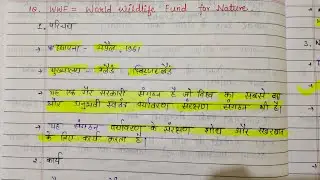 10. WWF = World Wildlife Fund for Nature.
1. परिचय
→ स्थापना - अप्रैल, 1961
मुख्यालय - ग्लैंड, स्विट्जरलैंड
→ यह एक गैर सरकारी संगठन है जो विश्व का सबसे बड़ा
और अनुभवी स्वतंत्र पर्यावरण संरक्षण संगठन भी है।
→ यह संगठन पर्यावरण के संरक्षण शोध और रखरखाव
के लिए कार्य करता है।
2. कार्य